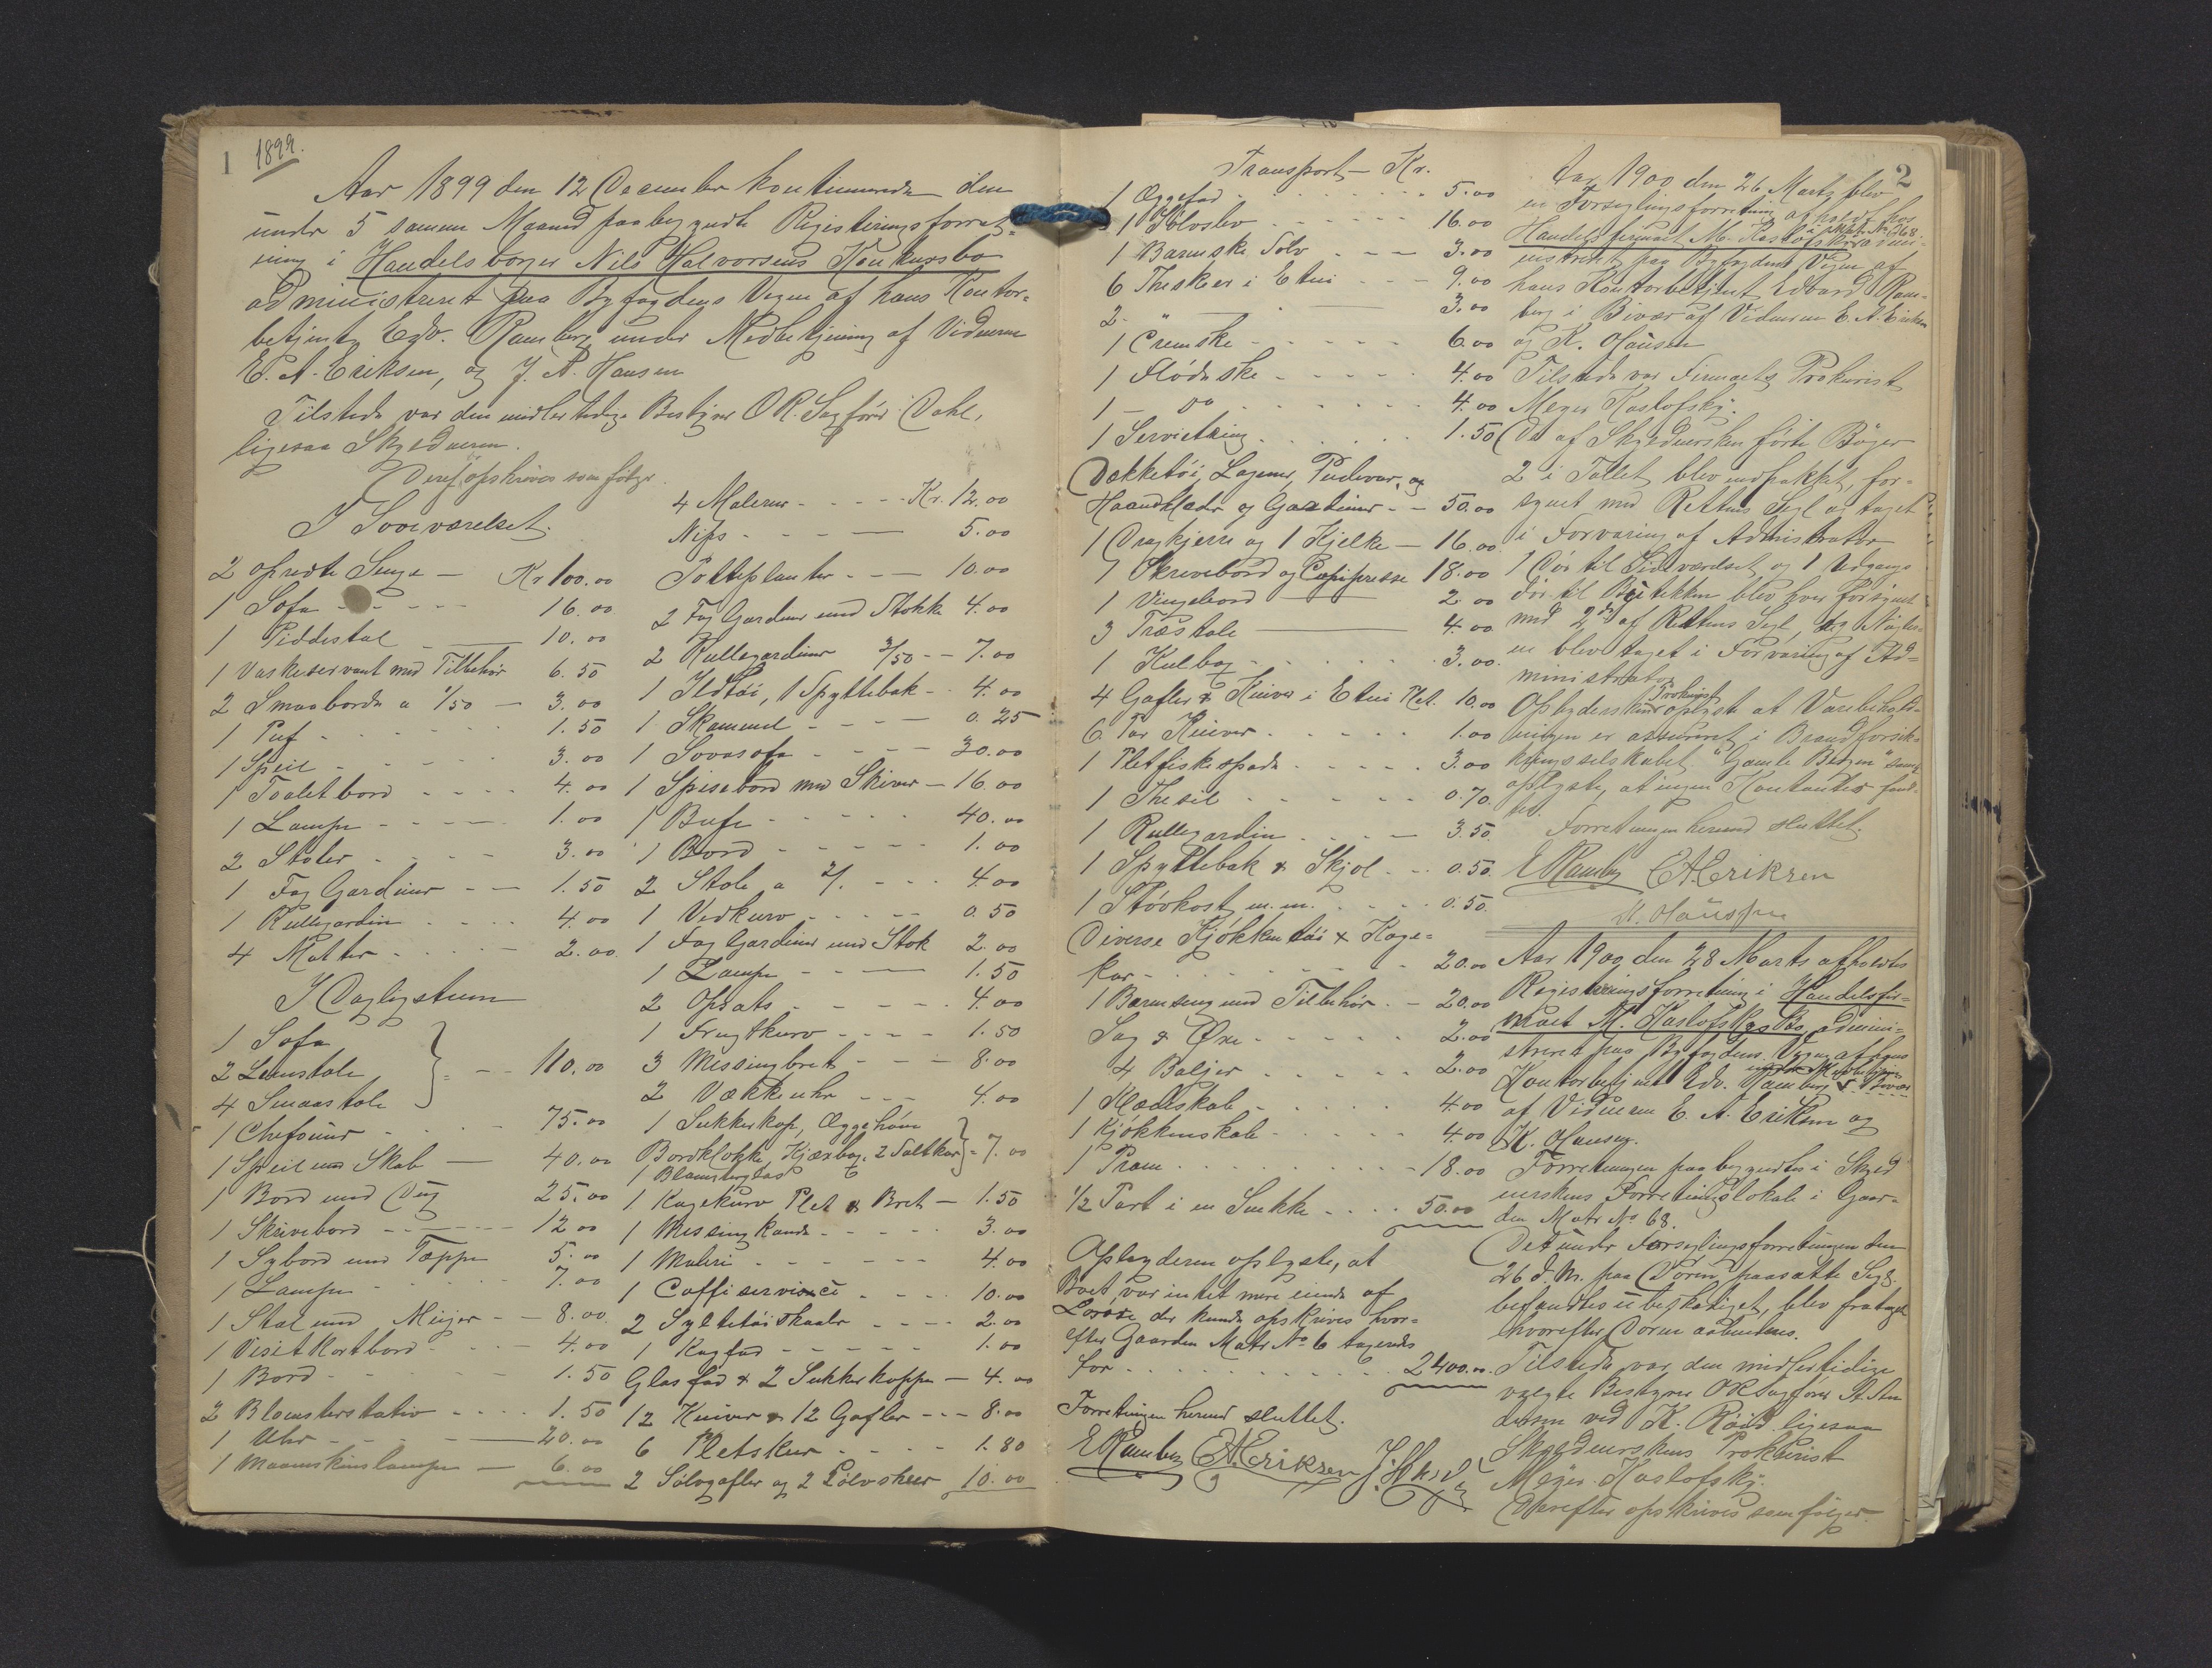 1
1899.
Aar 1899 den 12 December kontinuerede den
under 5 samme Maaned paabegyndte Registreringsforret=
ning i Handelsborger Nils Halvorsens Konkursbo
administreret paa Byfogdens Vegne af hans Kontor=
betjent Edv. Ramberg under Medbetjening af Vidnerne
E. A. Eriksen, og J. A. Hansen
Tilstede var den midlertidige Bestyrer O.R. Sagfører Dahl,
ligesaa Skyldneren.
Derefter opskrives som følger.
I Soveværelset.
2 opredte Senge — Kr 100.00
1 Sofa - - - 16.00
1 Piddestal — 10.00
1 Vaskeservant med Tilbehør 6.50
2 Smaaborde a 1/50 — 3.00
1 Puf - - - 1.50
1 Speil - - - 3.00
1 Toaletbord - - - 4.00
1 Lampe - - - 1.00
2 Stoler - - - 3.00
1 Fag Gardiner - - 1.50
1 Rullegardin - - - 4.00
4 Matter - - - 2.00
I Dagligstuen
1 Sofa
2 Lænstole
4 Smaastole } = - - 110.00
1 Chefonier - - - 75.00
1 Speil med Skab — 40.00
1 Bord med Dug 25.00
1 Skrivebord - - - 12.00
1 Sybord med Tæppe 5.00
1 Lampe - - - 7.00
1 Stol med - - 8.00
1 Visitkortbord - - - 4.00
1 Bord - - - 1.50
2 Blomsterstativ - - - 1.50
1 Uhr - - - 20.00
1 Maaneskinslampe — 6.00
4 Malerier - - - Kr. 12.00
Nips - - - 5.00
Potteplanter - - - 10.00
2 Fag Gardiner med Stokke 4.00
2 Rullegardiner 3/50 - - 7.00
1 Ildtøi, 1 Spyttebak - - 4.00
1 Skammel - - - 0.25
1 Sovesofa - - - 30.00
1 Spisebord med Skiver — 16.00
1 Bufe - - - 40.00
1 Bord - - - 1.00
2 Stole a 2/. - - - 4.00
1 Vedkurv - - - 0.50
1 Fag Gardiner med Stok 2.00
1 Lampe - - - 1.50
2 Opsats - - - 4.00
1 Frugtkurv - - - 1.50
3 Messingbret - - - 8.00
2 Vækkeuhr - - - 4.00
1 Sukkerkop, Æggehøne
Bordklokke, 2 Saltkar } = 7.00
1 Blomsterglas
1 Kagekurv Plet & Bret — 1.50
1 Messingkande - - - 3.00
1 Maleri - - - 4.00
1 Caffiservice - - - 10.00
2 Syltetøiskaale - - - 2.00
1 Kagfad - - - 1.00
Glasfad & 2 Sukkerkopper — 4.00
12 Kniver & 12 Gafler - - - 8.00
6 Pletskeer - - - 1.80
2 Sølvgafler og 2 Sølvskeer 10.00
Transport — Kr.
1 Æggefad - - - 5.00
1 Sølvslev - - - 16.00
1 Barneske Sølv - - - 3.00
6 Theskeer i Etui - - - 9.00
2 " — 3.00
1 Cremske - - - 6.00
1 Flødeske - - - 4.00
1 — do - - - 4.00
1 Servietring - - - 1.50
Dækketøi, Lagener, Pudevar, og
Haandklæder og Gardiner - - 50.00
1 Dragkjerre og 1 Kjelke — 16.00
1 Skrivebord og Copipresse 18.00
1 Vingebord — 2.00
3 Træstole — 4.00
1 Kulbox - - - 3.00
4 Gafler & Kniver i Etui Plet. 10.00
6 Par Kniver - - - 1.00
1 Pletfiskespade - - - 3.00
1 Thesil - - - 0.70
1 Rullegardin - - - 3.50
1 Spyttebak & Skjol - - 0.50
1 Støvkost m. m. - - - 0.50
Diverse Kjøkkentøi & Koge=
kar - - - 20.00
1 Barneseng med Tilbehør - - 20.00
Sag & Øxe - - - 2.00
4 Baljer - - - 2.00
1 Klædeskab - - - 4.00
1 Kjøkkenskab - - - 4.00
1 Pram - - - 18.00
1/2 Part i en Snekke - - - 50.00
Opbyderen oplyste, at
Boet var intet mere eiende af
Løsøre der kunde opskrives hvor=
efter Gaarden Matr No 6 toges
for - - - 2400.00
Forretningen hermed sluttet.
E Ramberg E. A. Eriksen
2
Aar 1900 den 26 Marts blev
en Forseglingsforretning afholdt hos
i Matr No 68.
Handelsfirmaet M. Koslofsky admi=
nistreret paa Byfogdens Vegne af
hans Kontorbetjent Edvard Ram=
berg i Bivær af Vidnerne E. A. Eriksen
og K. Hansen
Tilstede var Firmaets Prokurist
Meyer Koslofsky.
De af Skyldnersken førte Bøger
2 i Tallet blev indpakket, for=
synet med Rettens Segl og taget
i Forvaring af Administrator
1 Dør til Sideværelset og 1 Udgangs
dør til Butikken blev hver forsynet
med 2 de af Rettens Segl, og Nøgler=
ne blev taget i Forvaring af Ad=
ministrator
Prokurist
Opbyderskens oplyste at Varebehold=
ningen er assureret i Brandforsik=
kringsselskabet "Gamle Bergen" samt
oplyste, at ingen Kontanter fand=
tes.
Forretningen hermed sluttet.
E Ramberg E. A. Eriksen
K. Hanssen
Aar 1900 den 28 Marts afholdtes
Registreringsforretning i Handelsfir=
maet M. Koslofskys Bo admini=
streret paa Byfogdens Vegne af hans
Kontorbetjent Edv. Ramberg i Bivær
af Vidnerne E. A. Eriksen og
K. Hansen.
Forretningen paabegyndtes i Skyld
nerskens Forretningslokale i Gaar=
den Matr No 68.
Det under Forseglingsforretningen den
26 d. M. paa Døren paasatte Segl
befandtes ubeskadiget, blev fratagt
hvorefter Døren aabnedes.
Tilstede var den midlertidige
valgte Bestyrer O R Sagfører St. An
dersen ved K. Røed ligesaa
Skyldnerskens Prokurist
Meyer Koslofsky.
Derefter opskrives som følger.